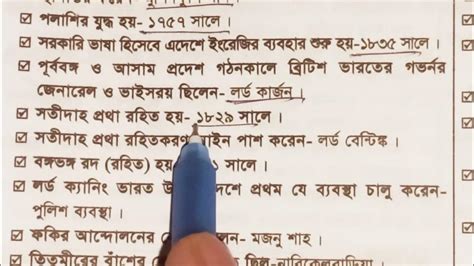 পলাশির যুদ্ধ হয়- ১৭৫৭ সালে।
সরকারি ভাষা হিসেবে এদেশে ইংরেজির ব্যবহার শুরু হয়-১৮৩৫ সালে।
পূর্ববঙ্গ ও আসাম প্রদেশ গঠনকালে ব্রিটিশ ভারতের গভর্নর
জেনারেল ও ভাইসরয় ছিলেন- লর্ড কার্জন।
সতীদাহ প্রথা রহিত হয়- ১৮২৯ সালে।
সতীদাহ প্রথা রহিতকরণ আইন পাশ করেন- লর্ড বেন্টিঙ্ক।
বঙ্গভঙ্গ রদ (রহিত) হয় ১ সালে।
লর্ড ক্যানিং ভারত উ দেশে প্রথম যে ব্যবস্থা চালু করেন-
পুলিশ ব্যবস্থা।
ফকির আন্দোলনের লেন- মজনু শাহ।
তিতুমীরের বাঁশের ছিল-নারিকেলবাড়িয়া।